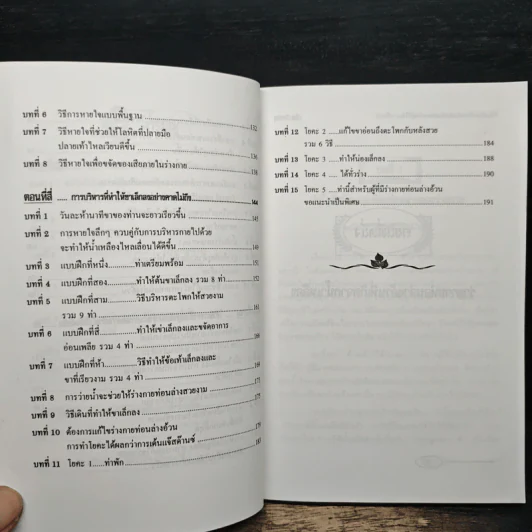 บทที่ 6 วิธีการหายใจแบบพื้นฐาน 132
บทที่ 7 วิธีหายใจที่ช่วยให้โลหิตที่ปลายมือ
ปลายเท้าไหลเวียนดีขึ้น 136
บทที่ 8 วิธีหายใจเพื่อขจัดของเสียภายในร่างกาย 138
ตอนที่สี่ การบริหารที่ทำให้ขาเล็กลงอย่างคาดไม่ถึง 144
บทที่ 1 วันละห้านาทีขาของท่านจะยาวเรียวขึ้น 145
บทที่ 2 การหายใจลึกๆ ควบคู่กับการบริหารกายไปด้วย
จะทำให้น้ำเหลืองไหลเลื่อนได้ดีขึ้น 149
บทที่ 3 แบบฝึกที่หนึ่ง ท่าเตรียมพร้อม 151
บทที่ 4 แบบฝึกที่สอง ทำให้ต้นขาเล็กลง รวม 8 ท่า 152
บทที่ 5 แบบฝึกที่สาม วิธีบริหารตะโพกให้สวยงาม
รวม 9 ท่า 161
บทที่ 6 แบบฝึกที่สี่ ทำให้เข่าเล็กลงและขจัดอาการ
อ่อนเพลีย รวม 4 ท่า
บทที่ 7 แบบฝึกที่ห้า วิธีทำให้ข้อเท้าเล็กลงและ
ขาที่เรียวงาม รวม 4 ท่า
บทที่ 8 การว่ายน้ำจะช่วยให้ร่างกายท่อนล่างสวยงาม
บทที่ 9 วิธีเดินที่ทำให้ขาเล็กลง
บทที่ 10 ต้องการแก้ไขร่างกายท่อนล่างอ้วน
การทำโยคะได้ผลกว่าการเต้นแจ๊สด๊านซ์
บทที่ 11 โยคะ 1 ท่าพัก
บทที่ 12 โยคะ 2 แก้ไขขาอ่อนถึงตะโพกกับหลังสวย
รวม 6 วิธี 184
บทที่ 13 โยคะ 3 ทำให้น่องเล็กลง 188
บทที่ 14 โยคะ 4 ได้ทั่วร่าง 190
บทที่ 15 โยคะ 5 ท่านี้สำหรับผู้ที่มีร่างกายท่อนล่างอ้วน
ขอแนะนำเป็นพิเศษ 191